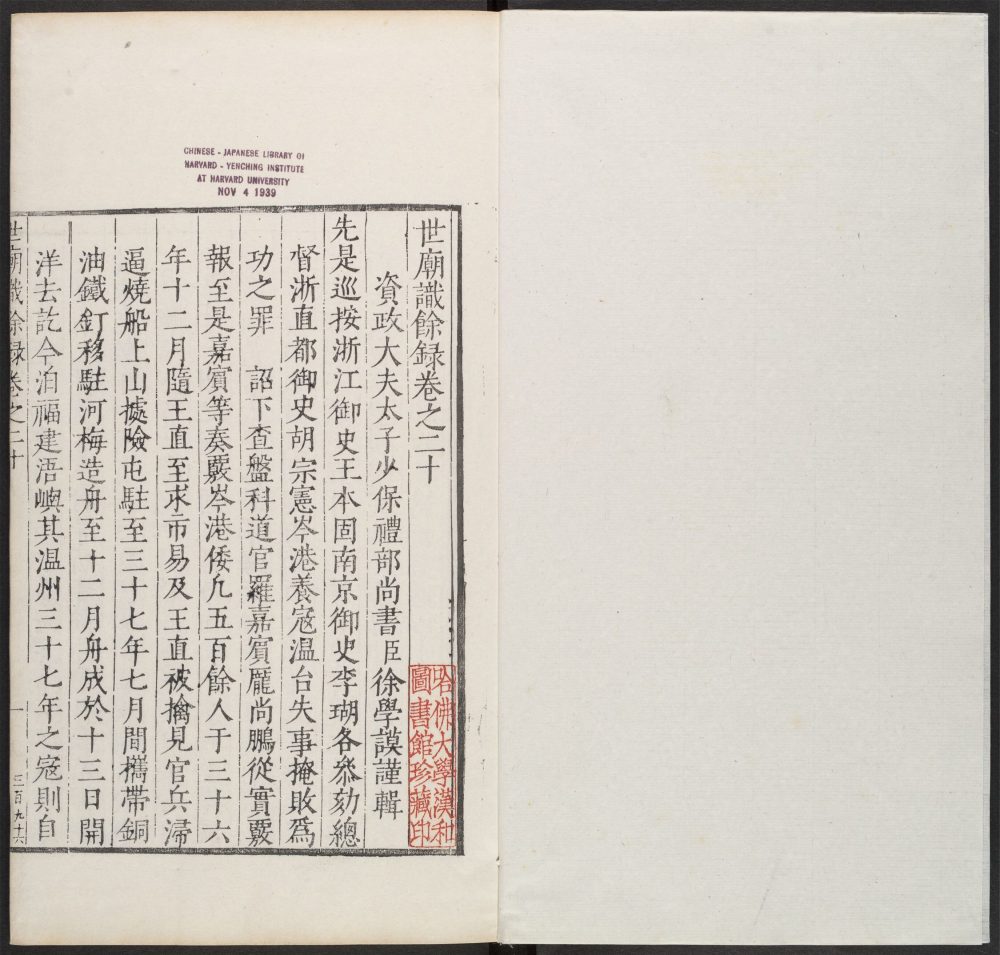 CHINESE - JAPANESE LIBRARY OF
HARVARD - YENCHING INSTITUTE
AT HARVARD UNIVERSITY
NOV 4 1939
世廟識餘録卷之二十
資政大夫太子少保禮部尚書臣徐學謨謹輯
先是巡按浙江御史王本固南京御史李瑚各叅劾總
督浙直都御史胡宗憲岑港養寇温台失事掩敗爲
功之罪 詔下查盤科道官羅嘉賓龎尚鵬從實覈
報至是嘉賓等奏覈岑港倭凢五百餘人于三十六
年十二月隨王直至求市易及王直被擒見官兵漸
逼燒船上山據險屯駐至三十七年七月間攜帶銅
油鐵釘移駐河梅造舟至十二月舟成於十三日開
洋去訖今泊福建浯嶼其温州三十七年之寇則自
世廟識餘録卷之二十
一
三百九十六
哈佛大學漢和
圖書館珍藏印